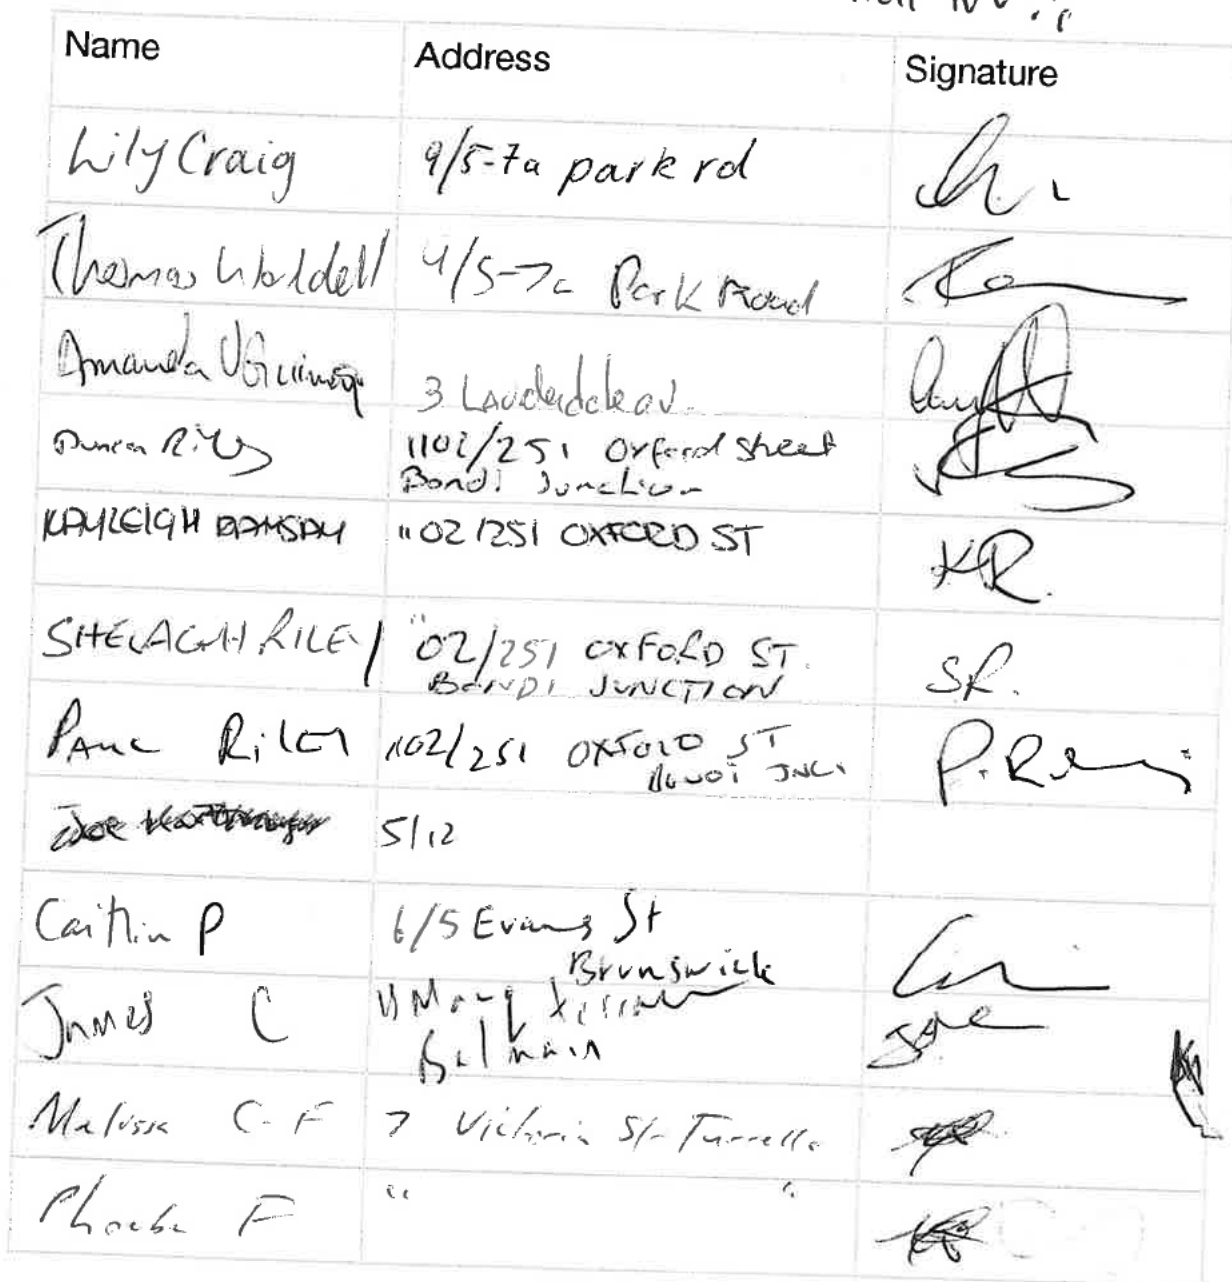 Name Address Signature
Lily Craig 9/5-7a park rd
Thomas Waddell 4/5-7a Park Road
Amanda 3 Lauderdale av.
Duncan Riley 1102/251 Oxford Street
Bondi Junction
KAYLEIGH RAMSAY 1102/251 OXFORD ST KR.
SHELAGH RILEY 1102/251 OXFORD ST.
BONDI JUNCTION SR.
PAUL RILEY 1102/251 OXFORD ST
BONDI JNC. P. Riley
Joe 5/12
Caitlin P 6/5 Evans St
Brunswick
James C Mary
Balmain
Melissa C-F 7 Victoria St Turrella
Phoebe F " "